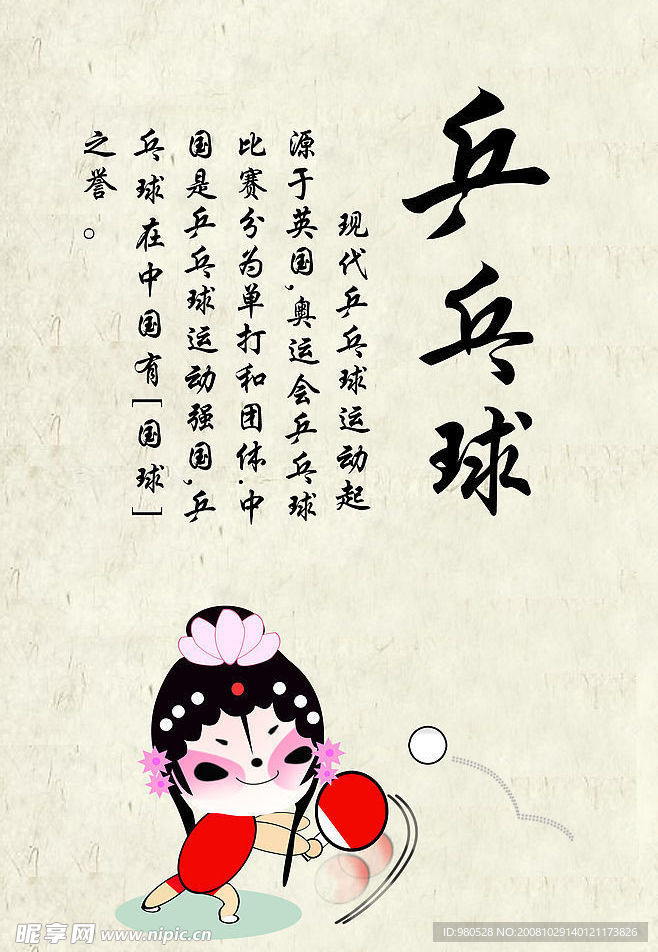 乒乓球
现代乒乓球运动起
源于英国,奥运会乒乓球
比赛分为单打和团体.中
国是乒乓球运动强国,乒
乓球在中国有[国球]
之誉。
昵享网 www.nipic.cn
ID:980528 NO:20081029140121173826